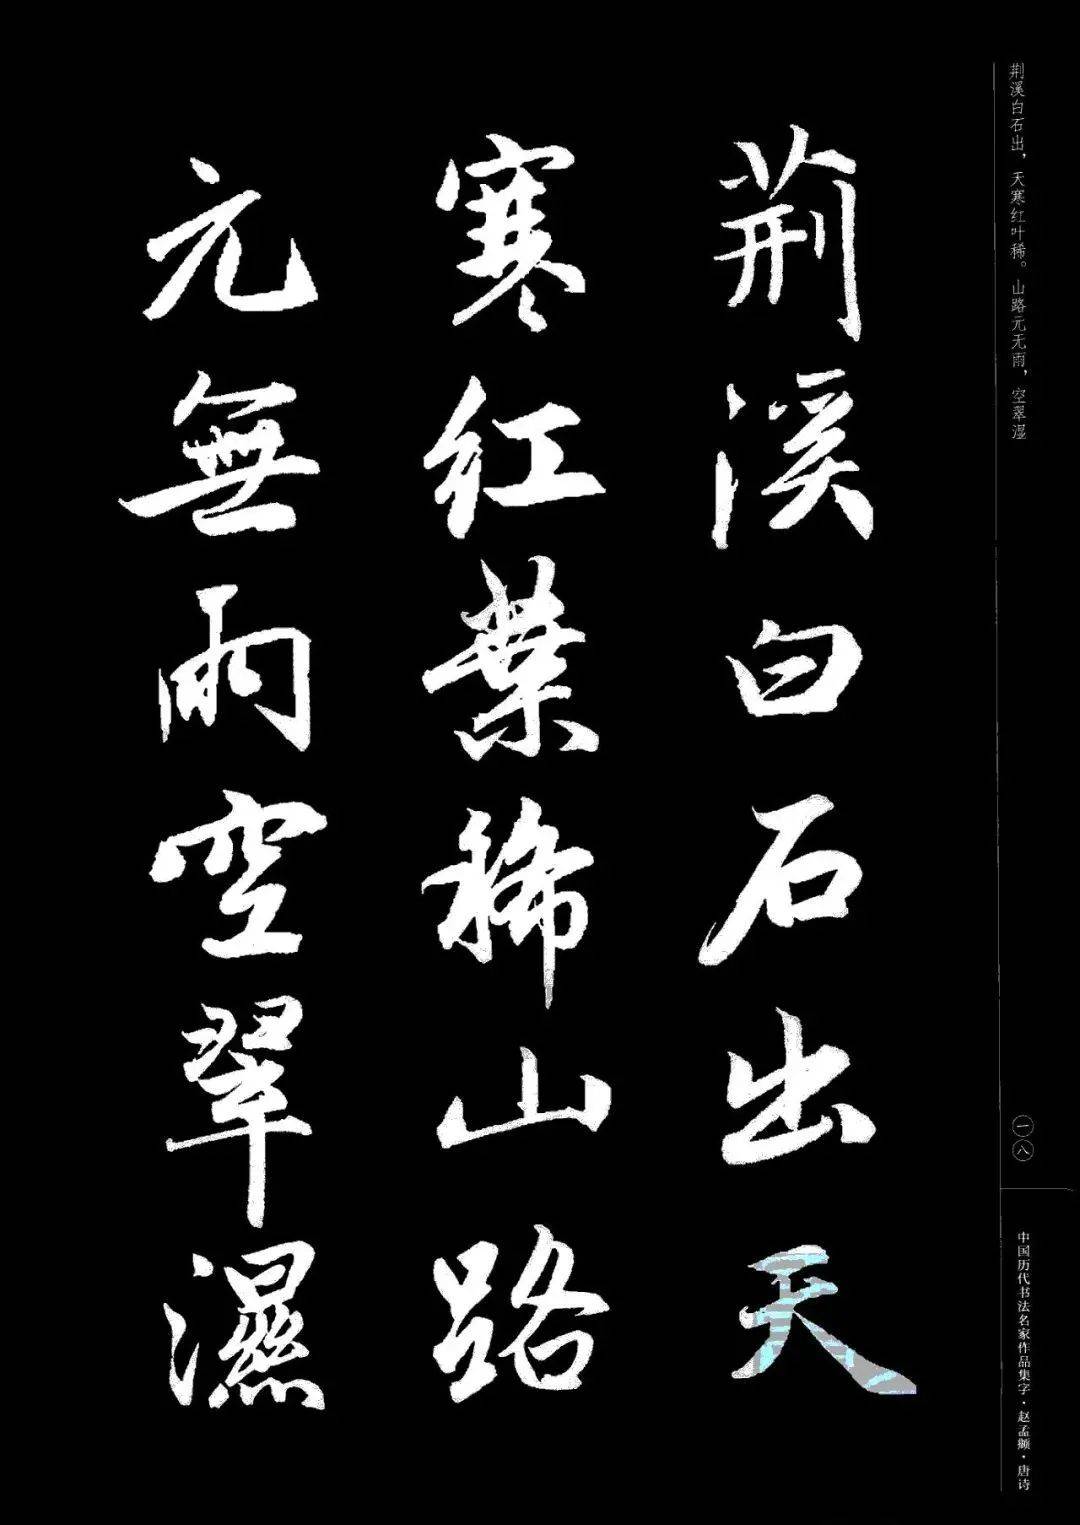 荆溪白石出，天寒红叶稀。山路元无雨，空翠湿
荆溪白石出天
寒红葉稀山路
元無雨空翠濕
一八
中国历代书法名家作品集字·赵孟頫·唐诗